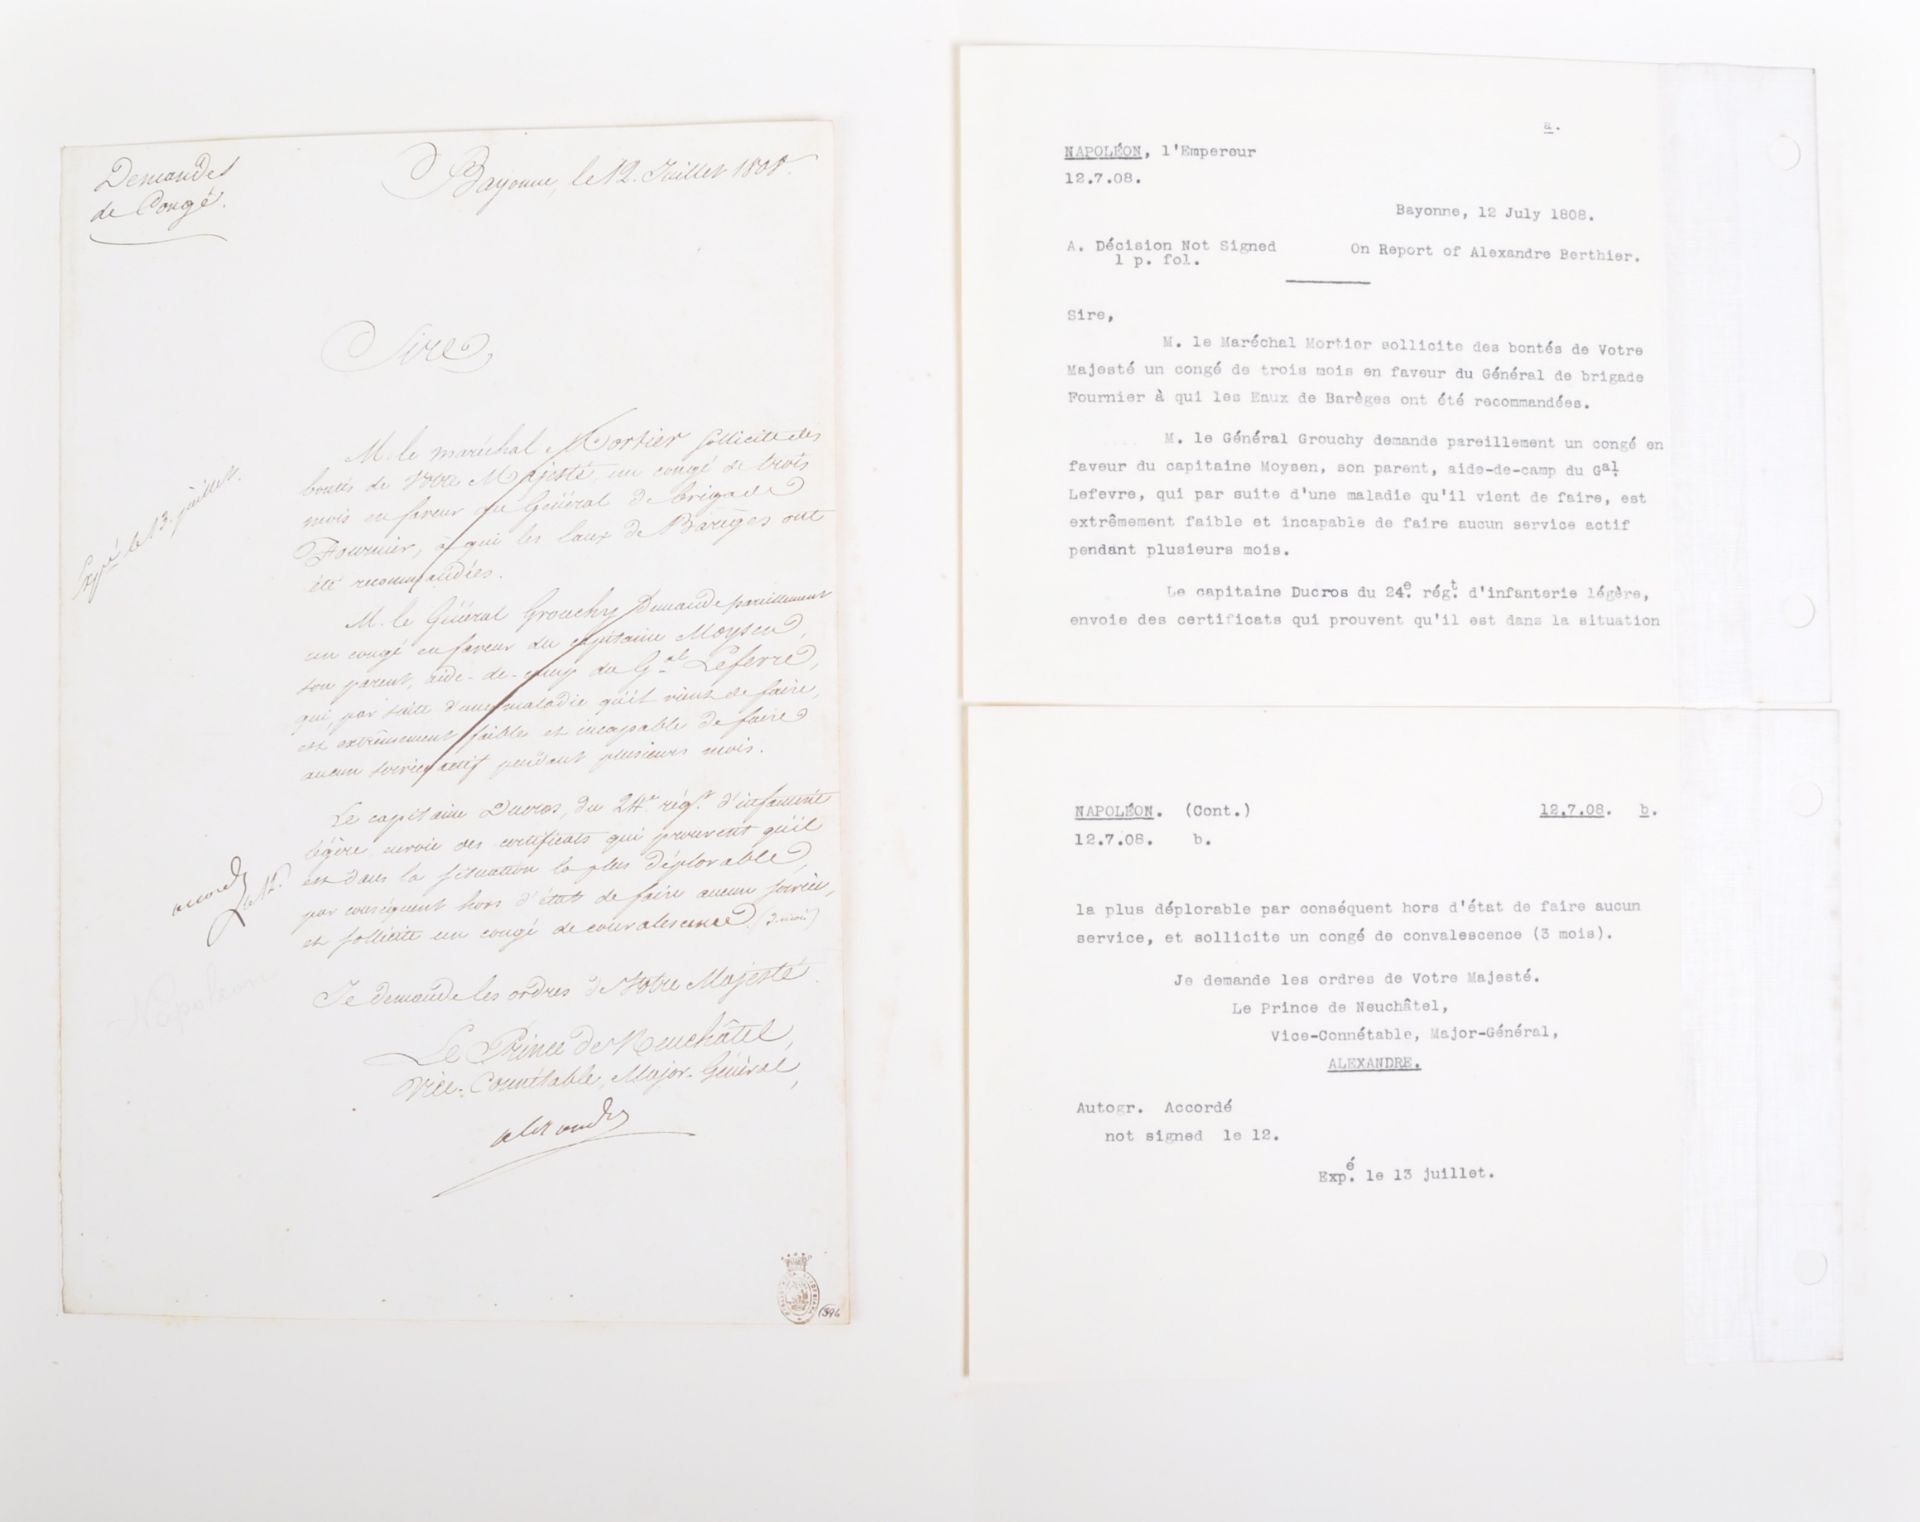 Demandes
de Congé.
Bayonne, le 12. Juillet 1808.
Sire,
M. le maréchal Mortier sollicite des
bontés de Votre Majesté, un congé de trois
mois en faveur du Général de brigade
Fournier, à qui les Eaux de Barèges ont
été recommandées.
M. le Général Grouchy demande pareillement
un congé en faveur du capitaine Moysen,
son parent, aide-de-camp du Gal Lefevre,
qui, par suite d'une maladie qu'il vient de faire,
est extrêmement faible et incapable de faire
aucun service actif pendant plusieurs mois.
Le capitaine Ducros, du 24e. régt. d'infanterie
légère, envoie des certificats qui prouvent qu'il
est dans la situation la plus déplorable,
par conséquent hors d'état de faire aucun service,
et sollicite un congé de convalescence. (3 mois)
Je demande les ordres de Votre Majesté.
Le Prince de Neuchâtel,
Vice-Connétable, Major-Général,
Alexandre
Expé le 13 juillet.
accordé
le 12.
Napoleon
1396
a.
NAPOLÉON, l'Empereur
12.7.08.
Bayonne, 12 July 1808.
A. Décision Not Signed On Report of Alexandre Berthier.
1 p. fol.
Sire,
M. le Maréchal Mortier sollicite des bontés de Votre
Majesté un congé de trois mois en faveur du Général de brigade
Fournier à qui les Eaux de Barèges ont été recommandées.
M. le Général Grouchy demande pareillement un congé en
faveur du capitaine Moysen, son parent, aide-de-camp du Gal.
Lefevre, qui par suite d'une maladie qu'il vient de faire, est
extrêmement faible et incapable de faire aucun service actif
pendant plusieurs mois.
Le capitaine Ducros du 24e. régt. d'infanterie légère,
envoie des certificats qui prouvent qu'il est dans la situation
NAPOLÉON. (Cont.) 12.7.08. b.
12.7.08. b.
la plus déplorable par conséquent hors d'état de faire aucun
service, et sollicite un congé de convalescence (3 mois).
Je demande les ordres de Votre Majesté.
Le Prince de Neuchâtel,
Vice-Connétable, Major-Général,
ALEXANDRE.
Autogr. Accordé
not signed le 12.
Expé. le 13 juillet.